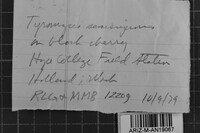 Tyromyces
on black cherry
Hope College Field Station
Holland, Mich
RLG & MMB 12209 10/9/79
ARIZ-M-AN19067